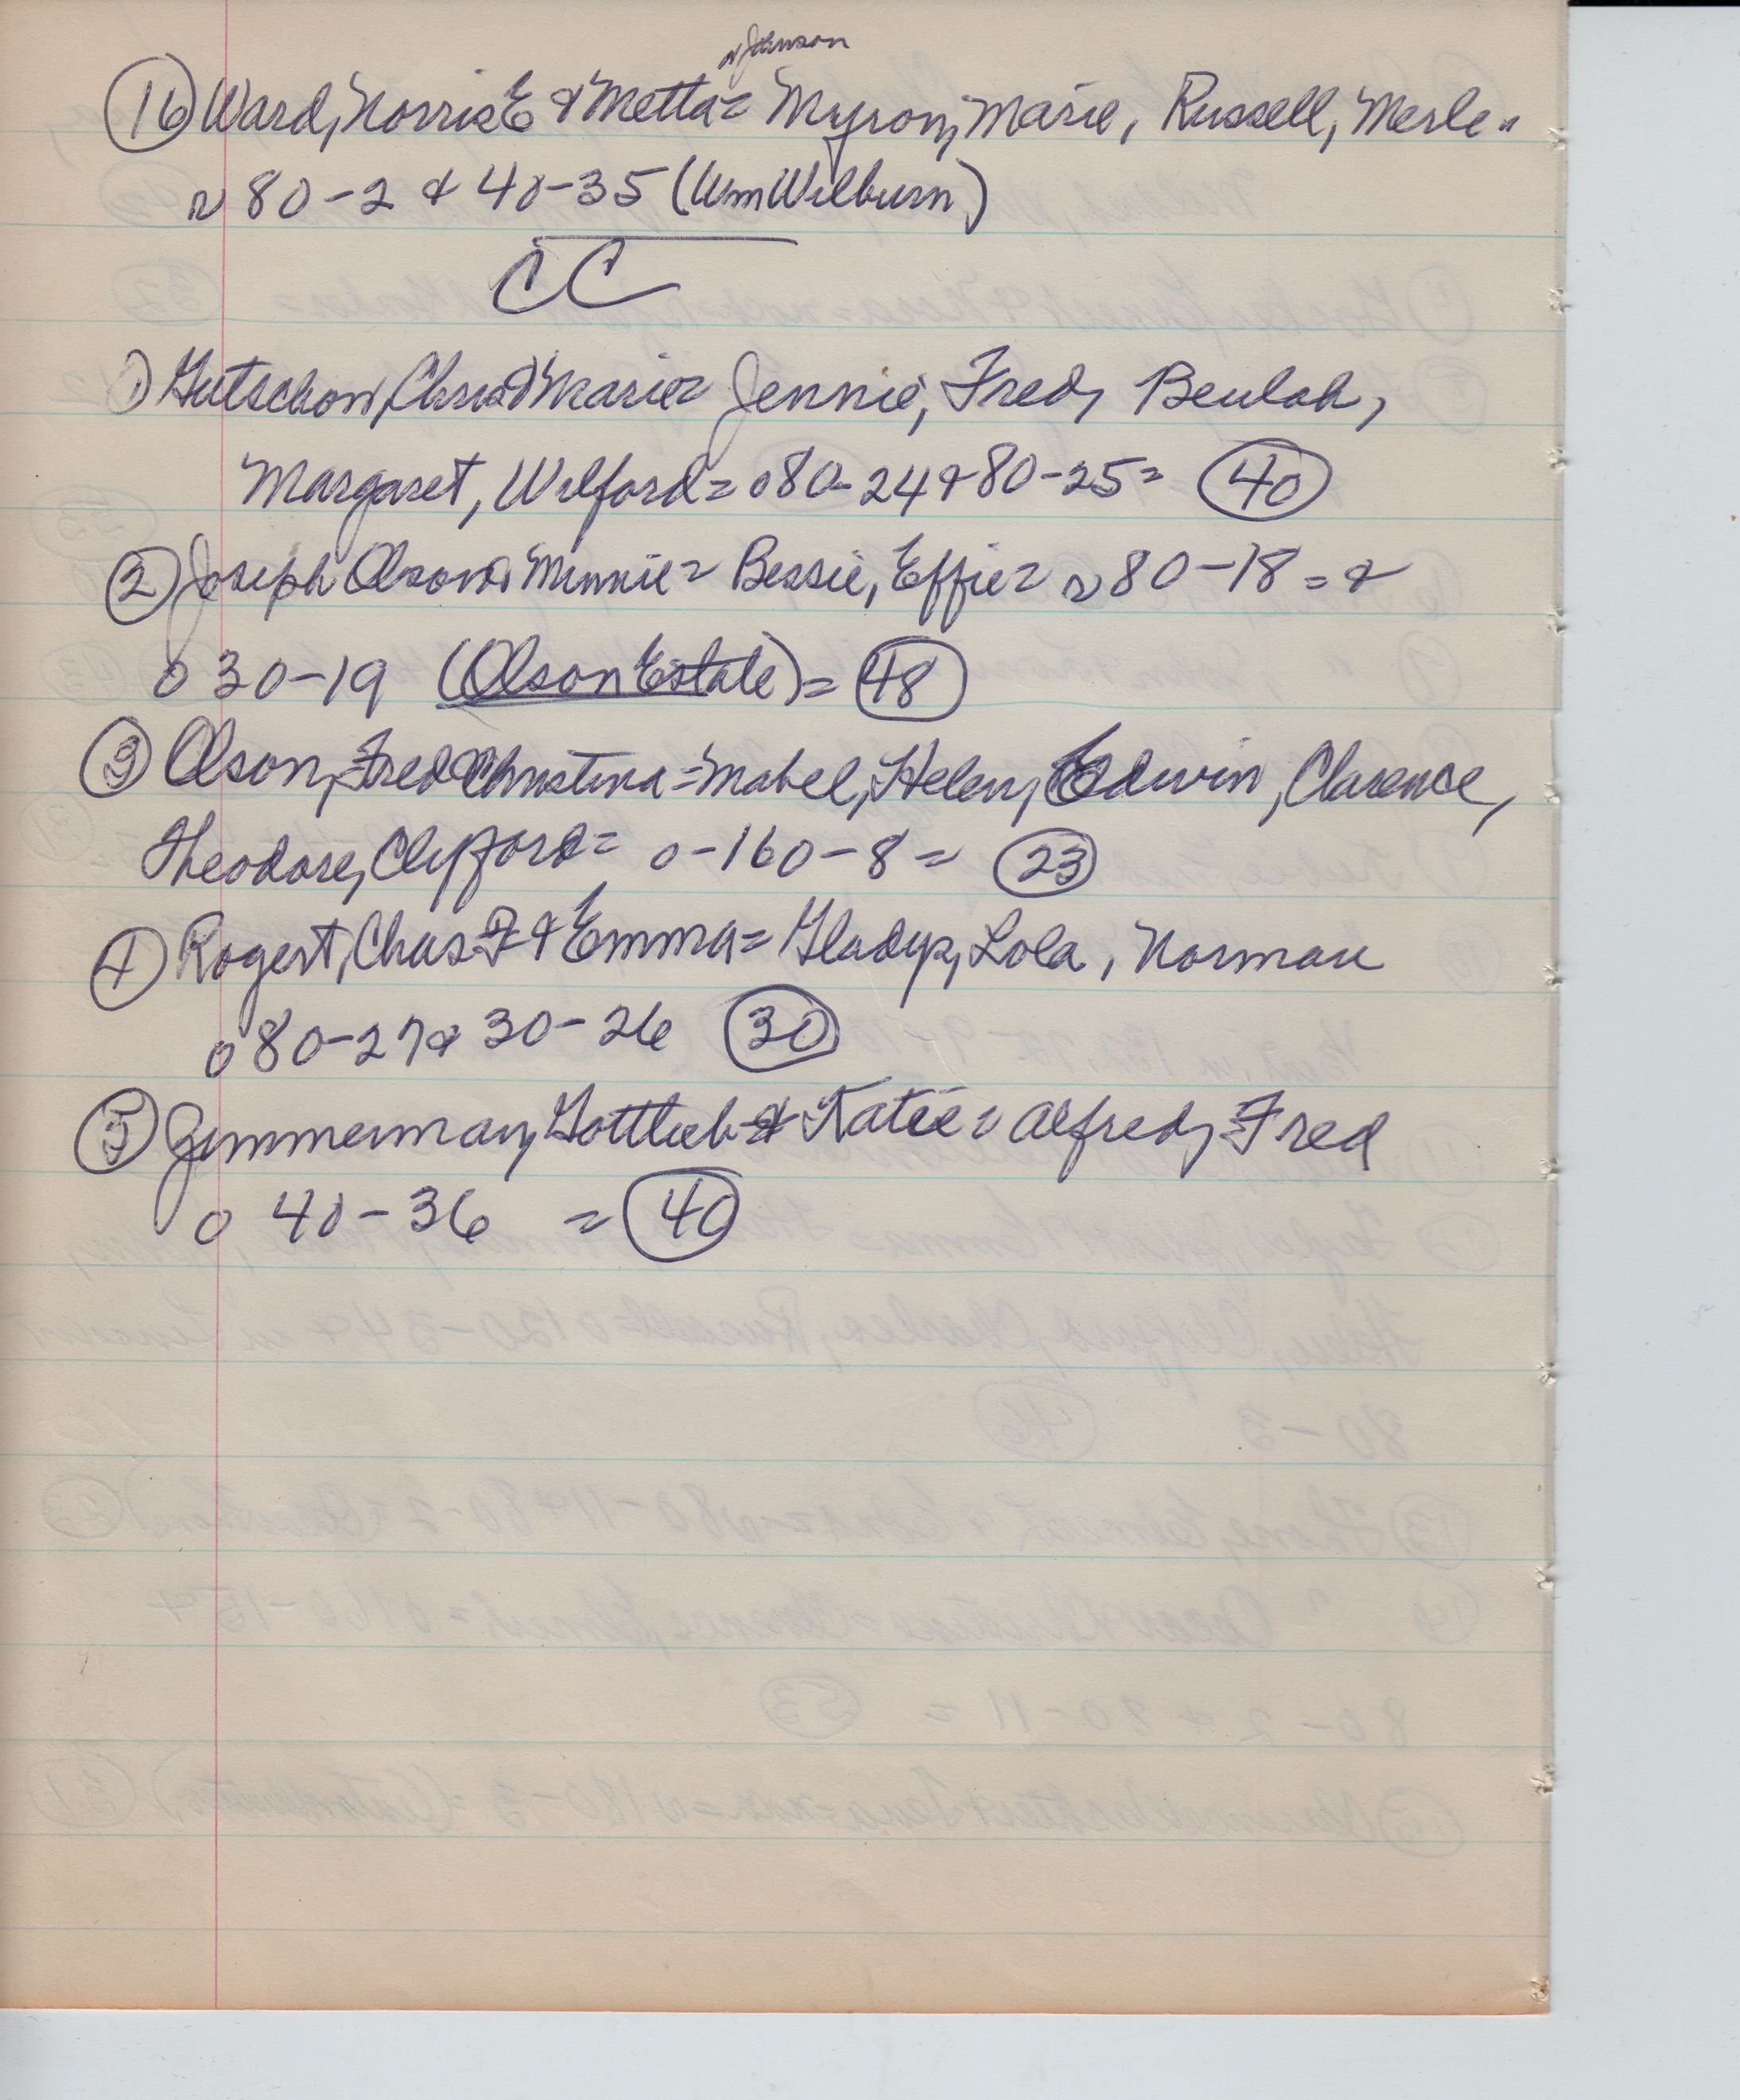 n Johnson
(16) Ward, Norris E & Metta = Myron, Marie, Russell, Merle =
r 80-2 & 40-35 (Wm Wilburn)
CC
(1) Gutschow, Chris & Marie = Jennie, Fred, Beulah,
Margaret, Wilford = o 80-24 & 80-25 = (40)
(2) Joseph Olson & Minnie = Bessie, Effie = r 80-18 = &
o 30-19 (Olson Estate) = (48)
(3) Olson, Fred & Christina = Mabel, Helen, Edwin, Clarence,
Theodore, Clifford = o-160-8 = (23)
(4) Rogert, Chas F & Emma = Gladys, Lola, Norman
o 80-27 & 30-26 (30)
(5) Zimmerman, Gottlieb & Katie = Alfred, Fred
o 40-36 = (40)